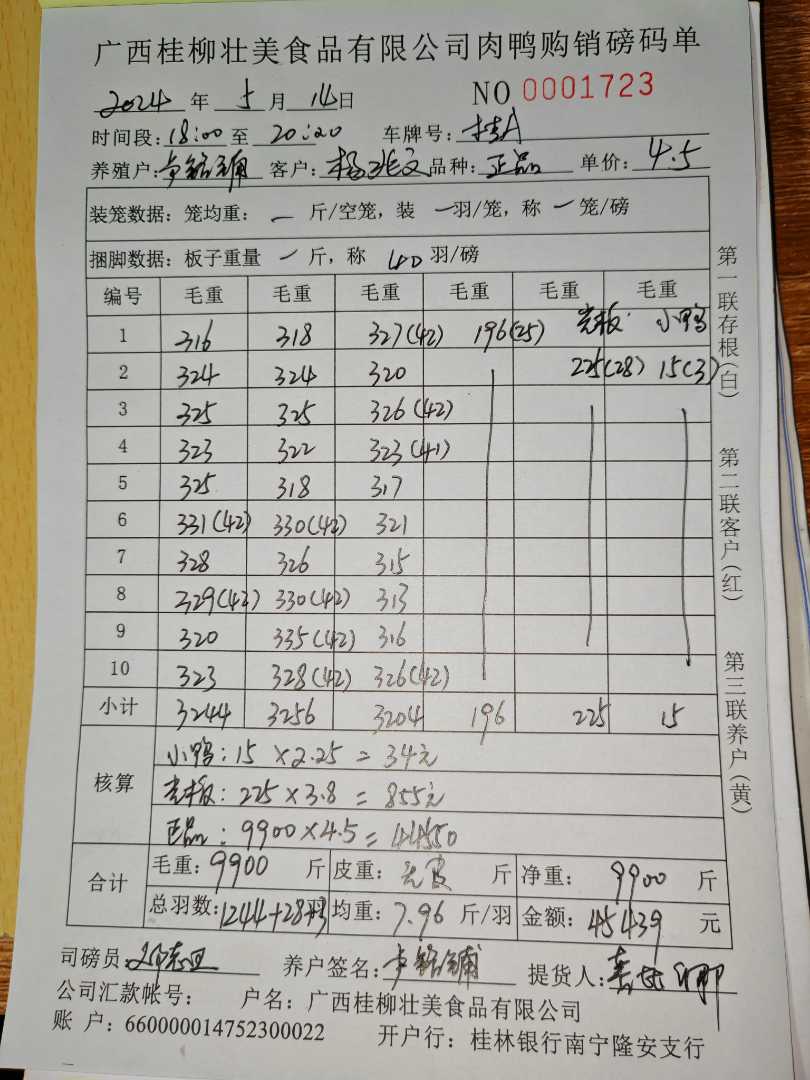 广西桂柳壮美食品有限公司肉鸭购销磅码单
2024 年 5 月 14 日 NO 0001723
时间段: 18:00 至 20:20 车牌号: 桂A
养殖户: 客户: 杨 文 品种: 正品 单价: 4.5
装笼数据: 笼均重: 一 斤/空笼, 装 一 羽/笼, 称 一 笼/磅
捆脚数据: 板子重量 一 斤, 称 40 羽/磅
编号 毛重 毛重 毛重 毛重 毛重 毛重
1 316 318 327(42) 196(25) 光板 小鸭
2 324 324 320 225(28) 15(3)
3 325 325 326(42)
4 323 322 323(41)
5 325 318 317
6 331(42) 330(42) 321
7 328 326 315
8 329(42) 330(42) 313
9 320 335(42) 316
10 323 328(42) 326(42)
小计 3244 3256 3204 196 225 15
核算
小鸭: 15 × 2.25 = 34元
光板: 225 × 3.8 = 855元
正品: 9900 × 4.5 = 44550
合计
毛重: 9900 斤 皮重: 无皮 斤 净重: 9900 斤
总羽数: 1244+28+3 均重: 7.96 斤/羽 金额: 45439 元
司磅员: 养户签名: 提货人:
公司汇款帐号: 户名: 广西桂柳壮美食品有限公司
账 户: 660000014752300022 开户行: 桂林银行南宁隆安支行
第一联存根(白)
第二联客户(红)
第三联养户(黄)